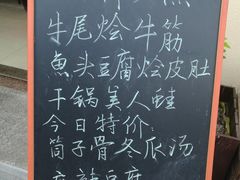 牛尾烩牛筋
魚头豆腐烩皮肚
干锅美人蛙
今日特价:
筒子骨冬瓜汤